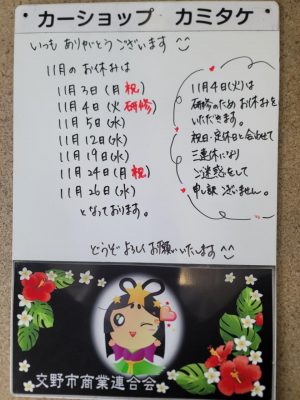 カーショップ カミタケ
いつも ありがとうございます
11月の お休みは
11月3日(月 祝)
11月4日(火 研修)
11月5日(水)
11月12日(水)
11月19日(水)
11月24日(月 祝)
11月26日(水)
となっております。
11月4日(火)は
研修のため お休みを
いただきます。
祝日・定休日と合わせて
三連休になり
ご迷惑をして
申し訳ございません。
どうぞ よろしく お願いいたします^^
交野市商業連合会